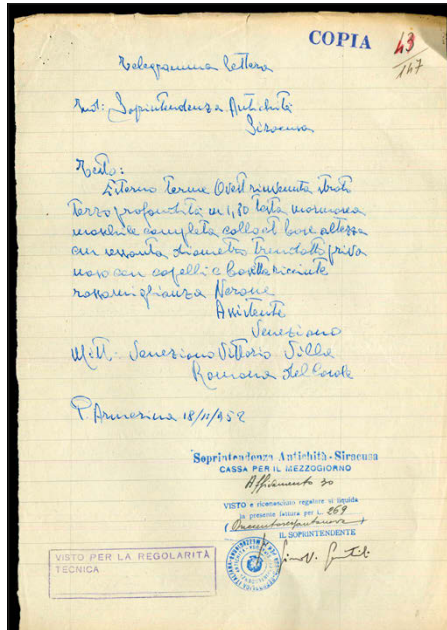 COPIA 43
147
Telegramma lettera
Ind: Soprintendenza Antichità
Siracusa
Testo:
Esterno Terme Ovest rinvenuta strato
terzo profondità m 1,80 testa marmorea
maschile completa collo et base altezza
cm sessanta diametro trentotto priva
naso con capelli e basette ricciute
rassomiglianza Nerone
Assistente
Veneziano
Mitt: Veneziano Vittorio Villa
Romana del Casale
P. Armerina 18/11/952
Soprintendenza Antichità - Siracusa
CASSA PER IL MEZZOGIORNO
Affidamento 30
VISTO e riconosciuto regolare si liquida
la presente fattura per L. 269
IL SOPRINTENDENTE
VISTO PER LA REGOLARITÀ
TECNICA